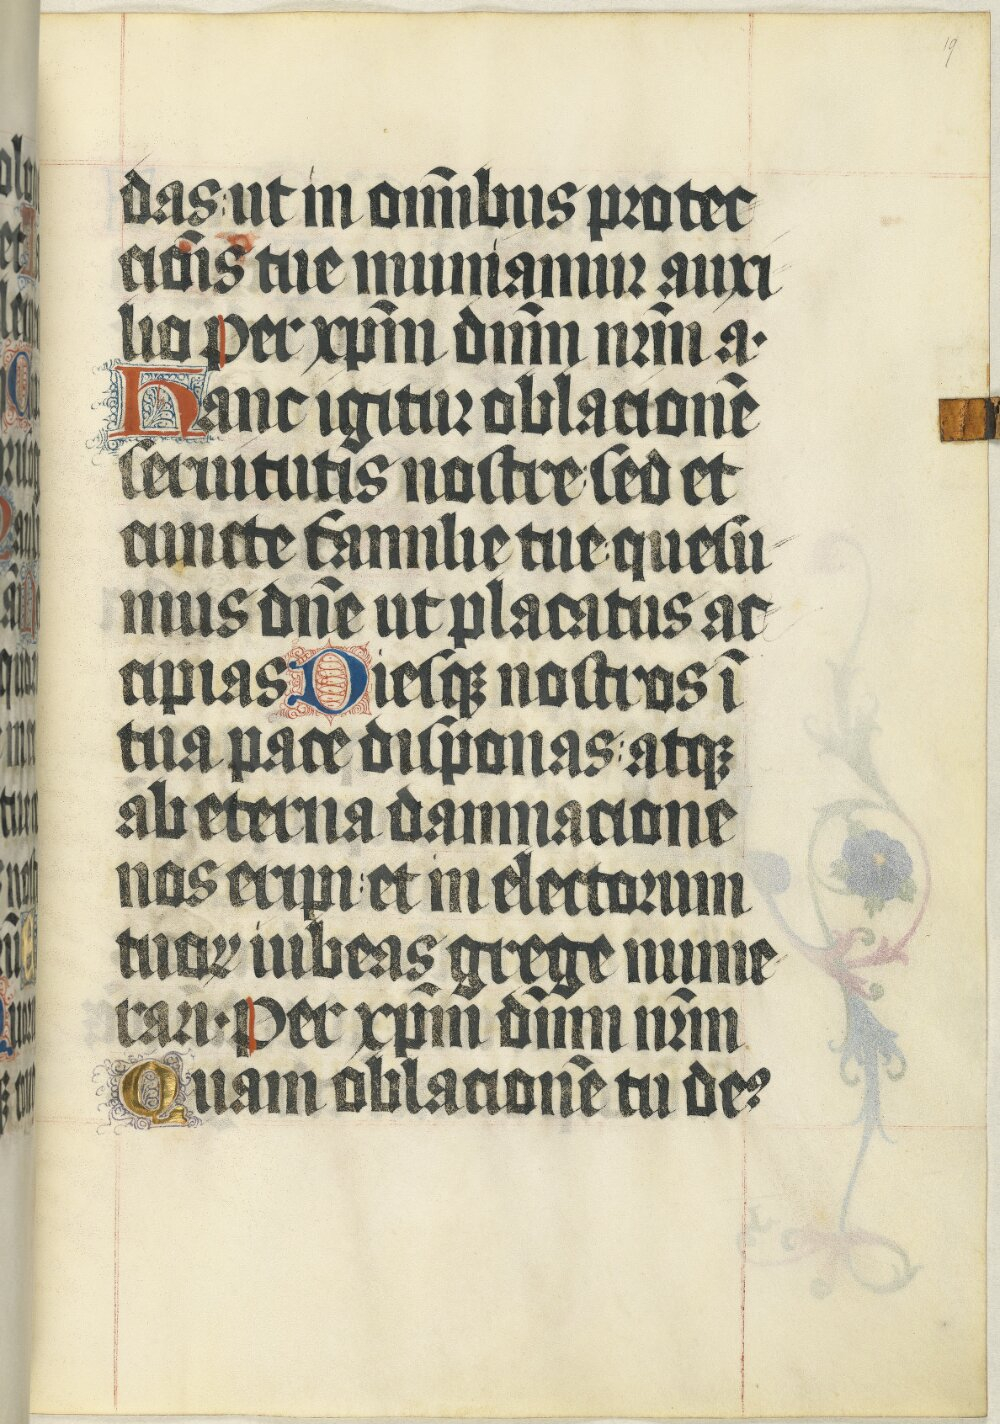 19
das: ut in om̅ibus protec
cio̅is tue muniamur auxi
lio per xp̅m dn̅m nr̅m a·
Hanc igitur oblacione̅
seruitutis nostre· sed et
cuncte familie tue· quesu
mus dn̅e ut placatus ac
cipias Diesqꝫ nostros i̅
tua pace disponas: atqꝫ
ab eterna damnacione
nos eripi: et in electorum
tuoꝝ iubeas grege nume
rari· per xp̅m dn̅m nr̅m
Quam oblacione̅ tu de